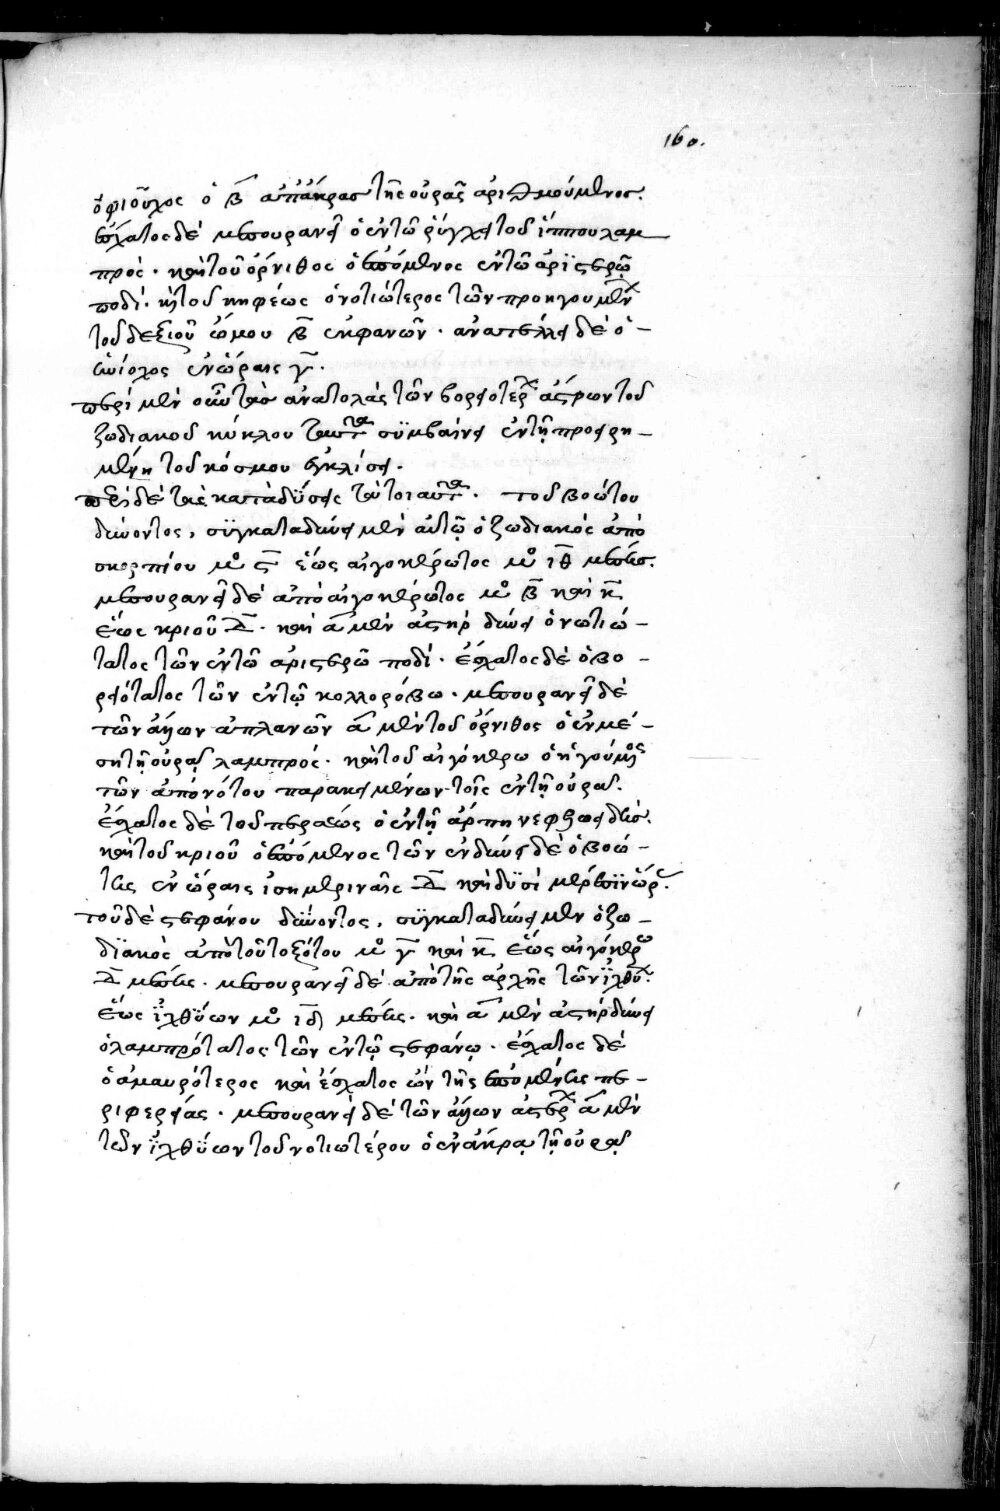 160.
ὀφιοῦχος ὁ β̄ ἀπ' ἄκρας τῆς οὐρᾶς ἀριθμούμενος.
ἔσχατος δὲ μεσουρανεῖ ὁ ἐν τῶ ῥύγχει τοῦ ἵππου λαμ
πρὸς · καὶ τοῦ ὄρνιθος ὁ ἑπόμενος ἐν τῶ ἀριστερῶ
ποδί · καὶ τοῦ κηφέως ὁ νοτιώτερος τῶν προηγουμένων
τοῦ δεξιοῦ ὤμου β̄ ἐκφανῶν · ἀνατέλλει δὲ ὁ -
ἡνίοχος ἐν ὥραις γ̄ ·
περὶ μὲν οὖν τὰς ἀνατολὰς τῶν βορειοτέρων ἄστρων τοῦ
ζωδιακοῦ κύκλου ταῦτα συμβαίνει ἐν τῆ προειρη -
μένη τοῦ κόσμου ἐγκλίσει ·
περὶ δὲ τὰς καταδύσεις τὰ τοιαῦτα · τοῦ βοώτου
δύνοντος, συγκαταδύνει μὲν αὐτῶ ὁ ζωδιακὸς ἀπὸ
σκορπίου μο ϛ̄ ἕως αἰγοκέρωτος μο ιθ̄ μέσης.
μεσουρανεῖ δὲ ἀπὸ αἰγοκέρωτος μο β̄ καὶ κ̄
ἕως κριοῦ δ̄ · καὶ ᾱ μὲν ἀστὴρ δύνει ὁ νωτιώ -
τατος τῶν ἐν τῶ ἀριστερῶ ποδί · ἔσχατος δὲ ὁ βο -
ρειότατος τῶν ἐν τῶ κολλορόβω · μεσουρανεῖ δὲ
τῶν ἄλλων ἀπλανῶν ᾱ μὲν τοῦ ὄρνιθος ὁ ἐν μέ -
ση τῆ οὐρᾶ λαμπρός · καὶ τοῦ αἰγόκερω ὁ ἡγούμενος
τῶν ἀπὸ νότου παρακειμένων τοῖς ἐν τῆ οὐρᾶ.
ἔσχατος δὲ τοῦ περσέως ὁ ἐν τῆ ἅρπη νεφελοειδής.
καὶ τοῦ κριοῦ ὁ ἑπόμενος τῶν ἐνδύνει δὲ ὁ βοώ -
της ἐν ὥραις ἰσημεριναῖς δ̄ καὶ δυσὶ μέρεσιν ὥρας.
τοῦ δὲ στεφάνου δύνοντος, συγκαταδύνει μὲν ὁ ζω -
διακὸς ἀπὸ τοῦ τοξότου μο γ̄ καὶ κ̄ ἕως αἰγόκερω
δ̄ μέσης · μεσουρανεῖ δὲ ἀπὸ τῆς ἀρχῆς τῶν ἰχθύων.
ἕως ἰχθύων μο ιδ̄ μέσης · καὶ ᾱ μὲν ἀστὴρ δύνει
ὁ λαμπρότατος τῶν ἐν τῶ στεφάνω · ἔσχατος δὲ
ὁ ἀμαυρότερος καὶ ἔσχατος ὢν τῆς ἑπομένης πε -
ριφερείας · μεσουρανεῖ δὲ τῶν ἄλλων ἀστέρων ᾱ μὲν
τῶν ἰχθύων τοῦ νοτιωτέρου ὁ ἐν ἄκρα τῆ οὐρᾶ